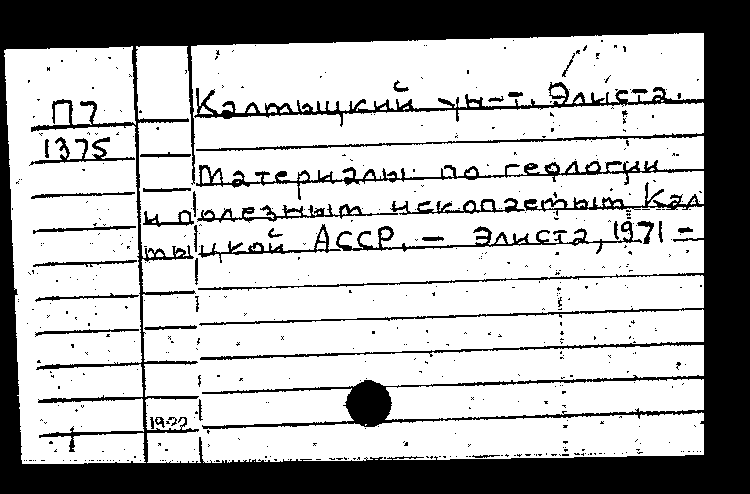 П7
1375
Калмыцкий ун-т. Элиста.
Материалы по геологии
и полезным ископаемым Кал
мыцкой АССР. — Элиста, 1971 -
1922
1